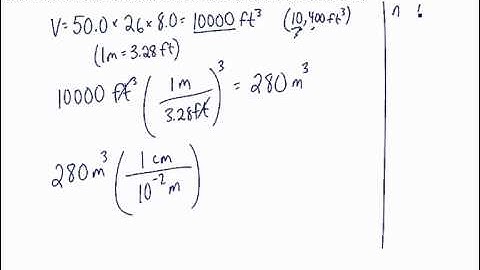 V = 50.0 × 26 × 8.0 = 10000 ft³ (10,400 ft³)
(1m = 3.28 ft)
10000 ft³ (1m / 3.28ft)³ = 280 m³
280 m³ (1 cm / 10⁻² m)
n !